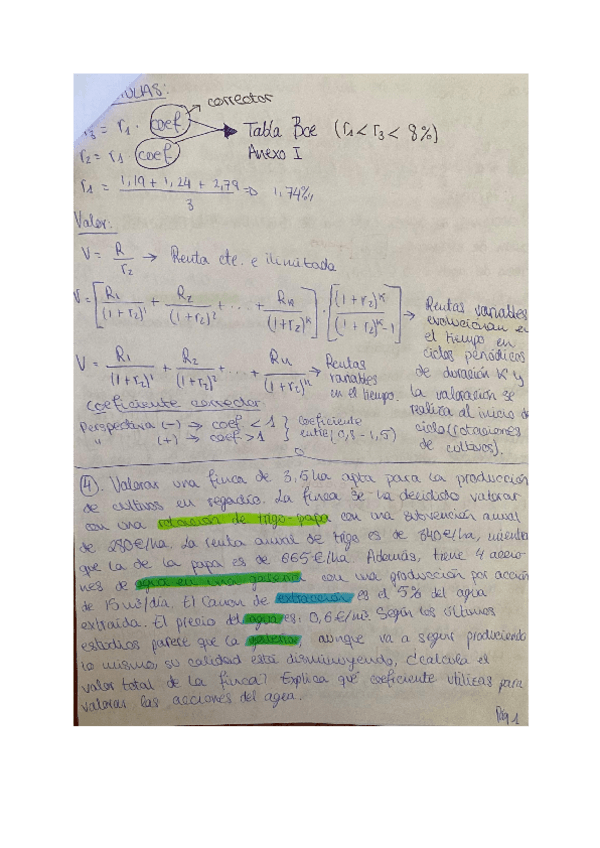 MULAS:
corrector
r3 = r1 · coef
r2 = r1 · coef
Tabla Bce (r1 < r3 < 8%)
Anexo I
r1 = (1,19 + 1,24 + 2,79) / 3 => 1,74%
Valor:
V = R / r2 → Renta cte. e ilimitada
V = [R1 / (1+r2)^1 + R2 / (1+r2)^2 + ... + RK / (1+r2)^K] · [(1+r2)^K / (1+r2)^K-1] →
Rentas variables
evolucionan en
el tiempo en
ciclos periódicos
de duración K y
la valoración se
realiza al inicio de
ciclo (rotaciones
de cultivos).
V = R1 / (1+r2)^1 + R2 / (1+r2)^2 + ... + Rn / (1+r2)^n →
Rentas
variables
en el tiempo.
coeficiente corrector
Perspectiva (-) → coef < 1 } coeficiente
" (+) → coef > 1 } entre (0,8 - 1,5)
④. Valorar una finca de 3,5 ha apta para la producción
de cultivos en regadío. La finca se ha decidido valorar
con una rotación de trigo-papa con una subvención anual
de 280€/ha. La renta anual de trigo es de 340€/ha, mientras
que la de la papa es de 665€/ha. Además, tiene 4 accio-
nes de agua en una galería con una producción por acción
de 15 m³/día. El Canon de extracción es el 5% del agua
extraída. El precio del agua es: 0,6€/m³. Según los últimos
estudios parece que la galería, aunque va a seguir produciendo
lo mismo, su calidad está disminuyendo, ¿calcula el
valor total de la finca? Explica qué coeficiente utilizas para
valorar las acciones del agua.
Pág 1